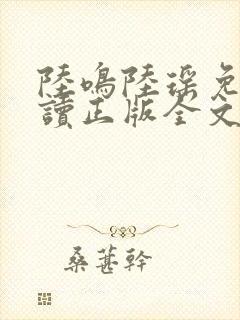 陸鳴陸瑶免
讀正版全文
桑葚幹